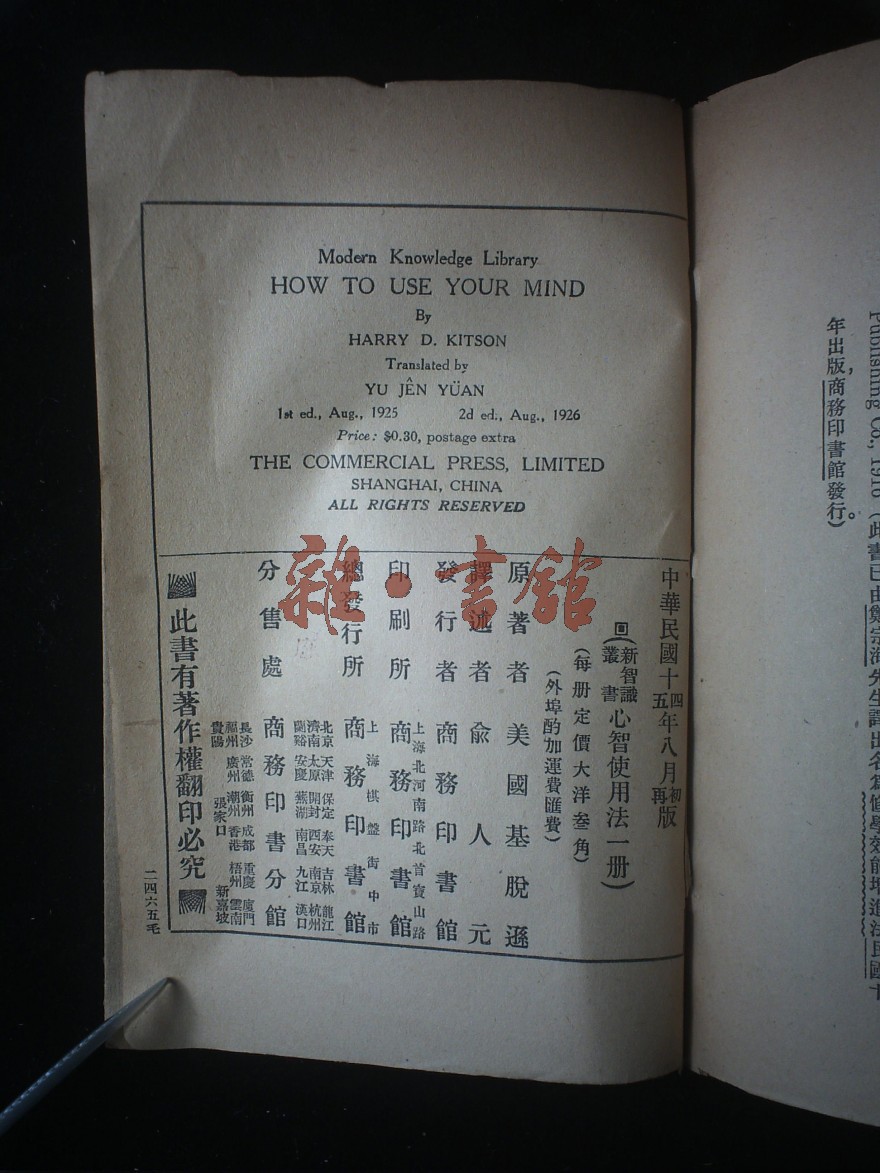 Modern Knowledge Library
HOW TO USE YOUR MIND
By
HARRY D. KITSON
Translated by
YU JÊN YÜAN
1st ed., Aug., 1925 2d ed., Aug., 1926
Price: $0.30, postage extra
THE COMMERCIAL PRESS, LIMITED
SHANGHAI, CHINA
ALL RIGHTS RESERVED
中華民國十四年八月初版
五 再
回(新智識叢書心智使用法一册)
(每册定價大洋叁角)
(外埠酌加運費匯費)
原著者 美國基脫遜
譯述者 俞人元
發行者 商務印書館
印刷所 上海北河南路北首寶山路 商務印書館
總發行所 上海棋盤街中市 商務印書館
分售處 商務印書分館
北京 天津 保定 奉天 吉林 龍江
濟南 太原 開封 西安 南京 杭州
蘭谿 安慶 蕪湖 南昌 九江 漢口
長沙 常德 衡州 成都 重慶 廈門
福州 廣州 潮州 香港 梧州 雲南
貴陽 張家口 新嘉坡
此書有著作權翻印必究
二四六五毛
雜·書館
Publishing Co., 1916 (此書已由鄭宗海先生譯出名爲修學效能增進法民國十
年出版,商務印書館發行)。